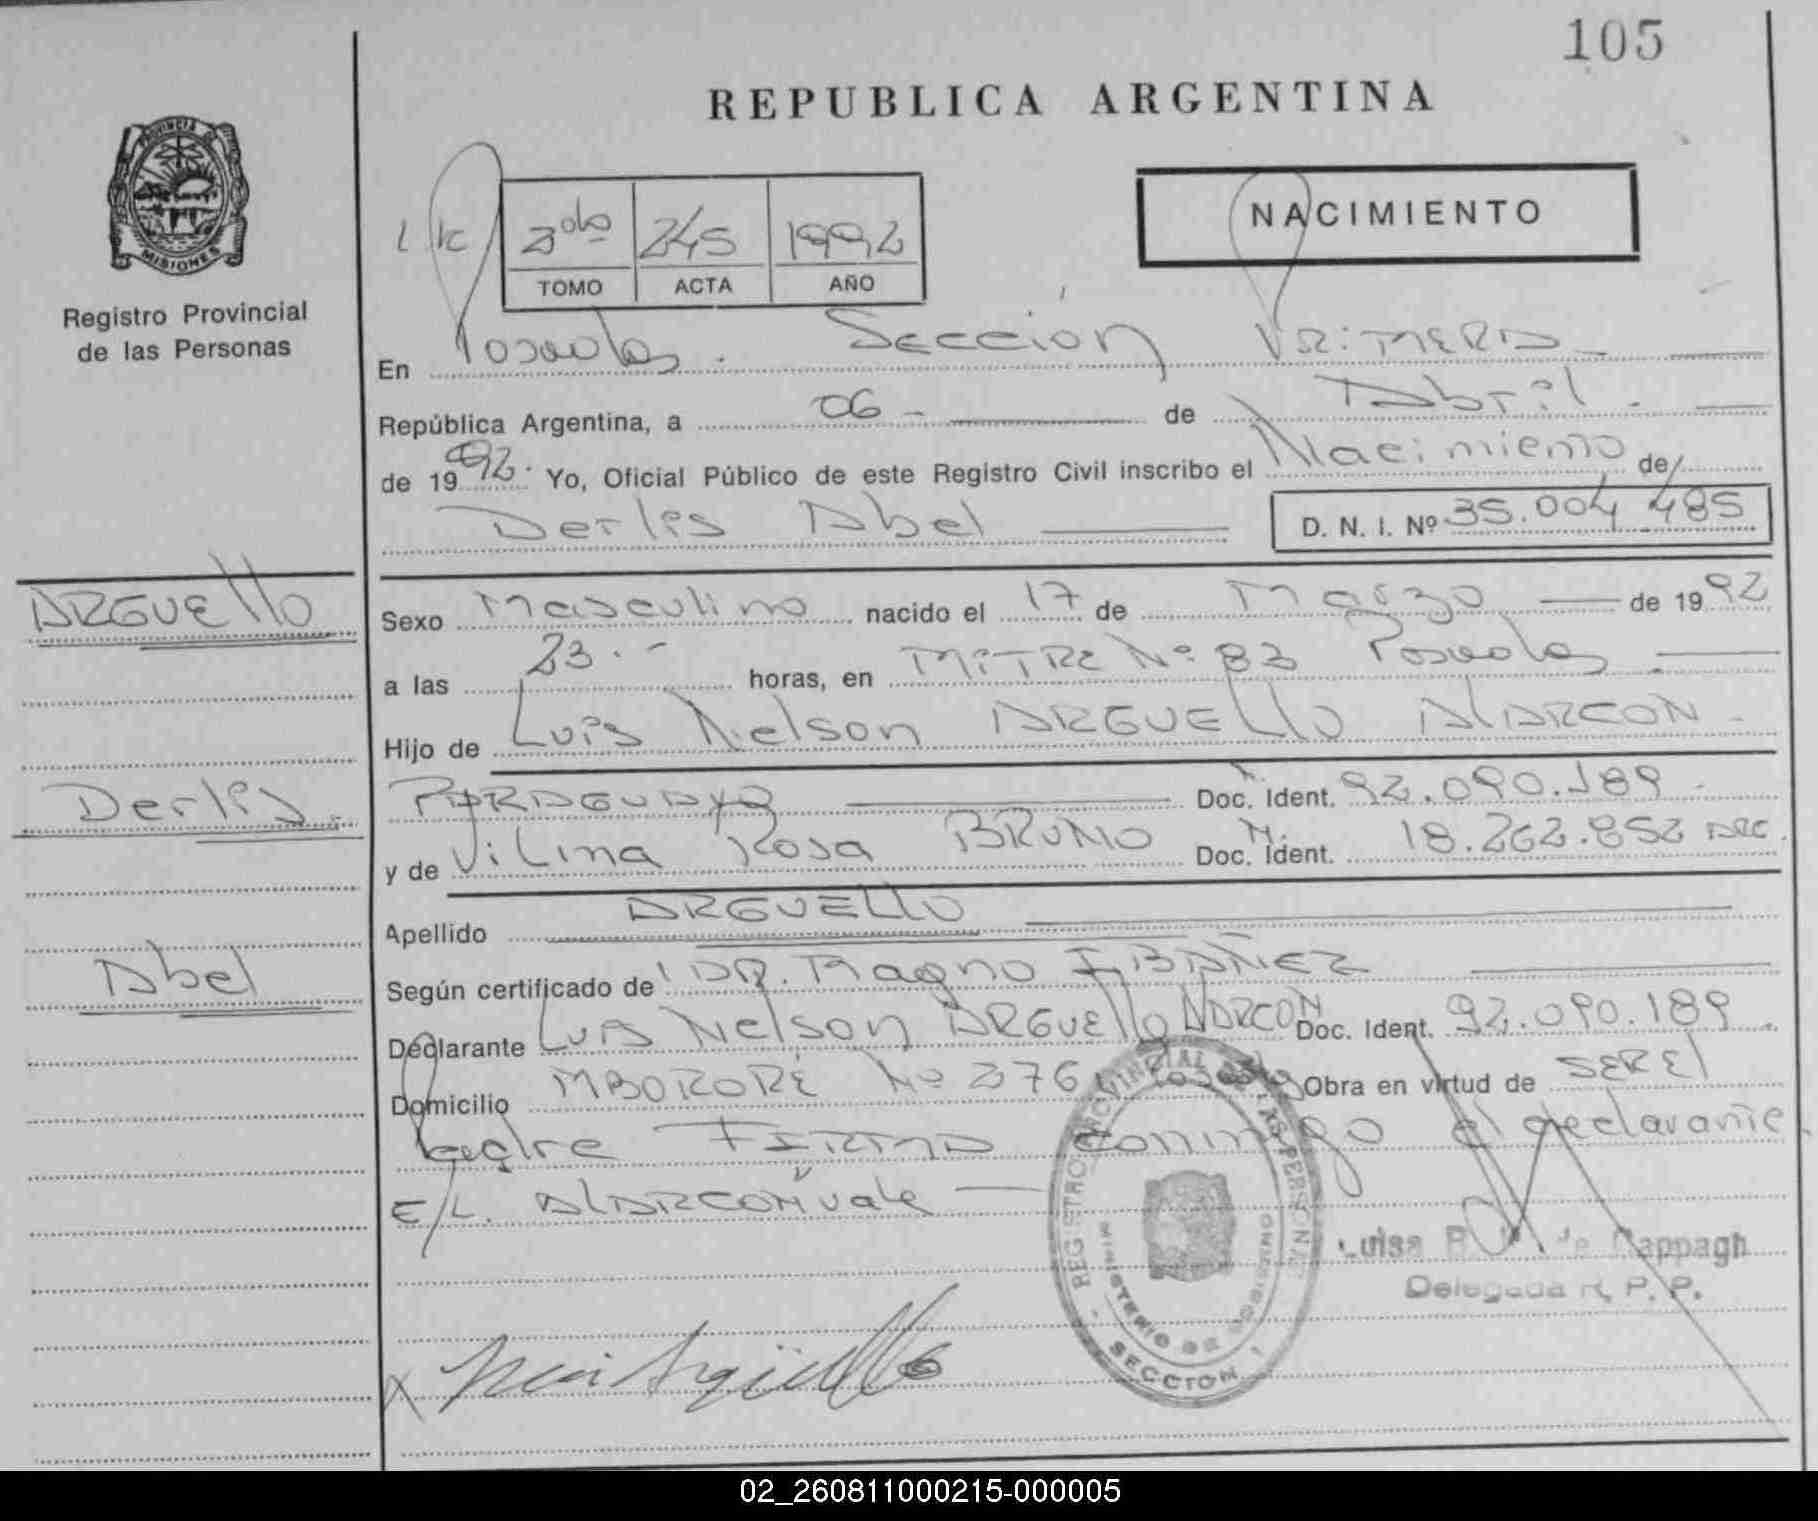 105
REPUBLICA ARGENTINA
PROVINCIA DE
MISIONES
Registro Provincial
de las Personas
2do 245 1992
TOMO ACTA AÑO
NACIMIENTO
En Posadas. Sección Primera
República Argentina, a 06 de Abril.
de 1992. Yo, Oficial Público de este Registro Civil inscribo el Nacimiento de
Derlis Abel D. N. I. Nº 35.004.485
ARGUEllO
Derlis
Abel
Sexo Masculino nacido el 17 de Marzo de 1992
a las 23.- horas, en MITRE Nº 83 Posadas
Hijo de Luis Nelson ARGUELLO AlARCON
PARAGUAYO Doc. Ident. 92.090.189
y de Vilma Rosa BRUNO Doc. Ident. 18.262.852 ARG.
Apellido ARGUELLO
Según certificado de DR. Magno IBAÑEZ
Declarante Luis Nelson ARGUEllO AlARCON Doc. Ident. 92.090.189
Domicilio MBORORÉ Nº 376 Posadas Obra en virtud de SER El
Padre FIRMA conmigo el declarante
E/L. AlARCON vale
REGISTRO PROVINCIAL DE LAS PERSONAS
MINISTERIO DE GOBIERNO
SECCION 1
Luisa de Cappagh
Delegada R. P. P.
Luis Argüello
02_260811000215-000005